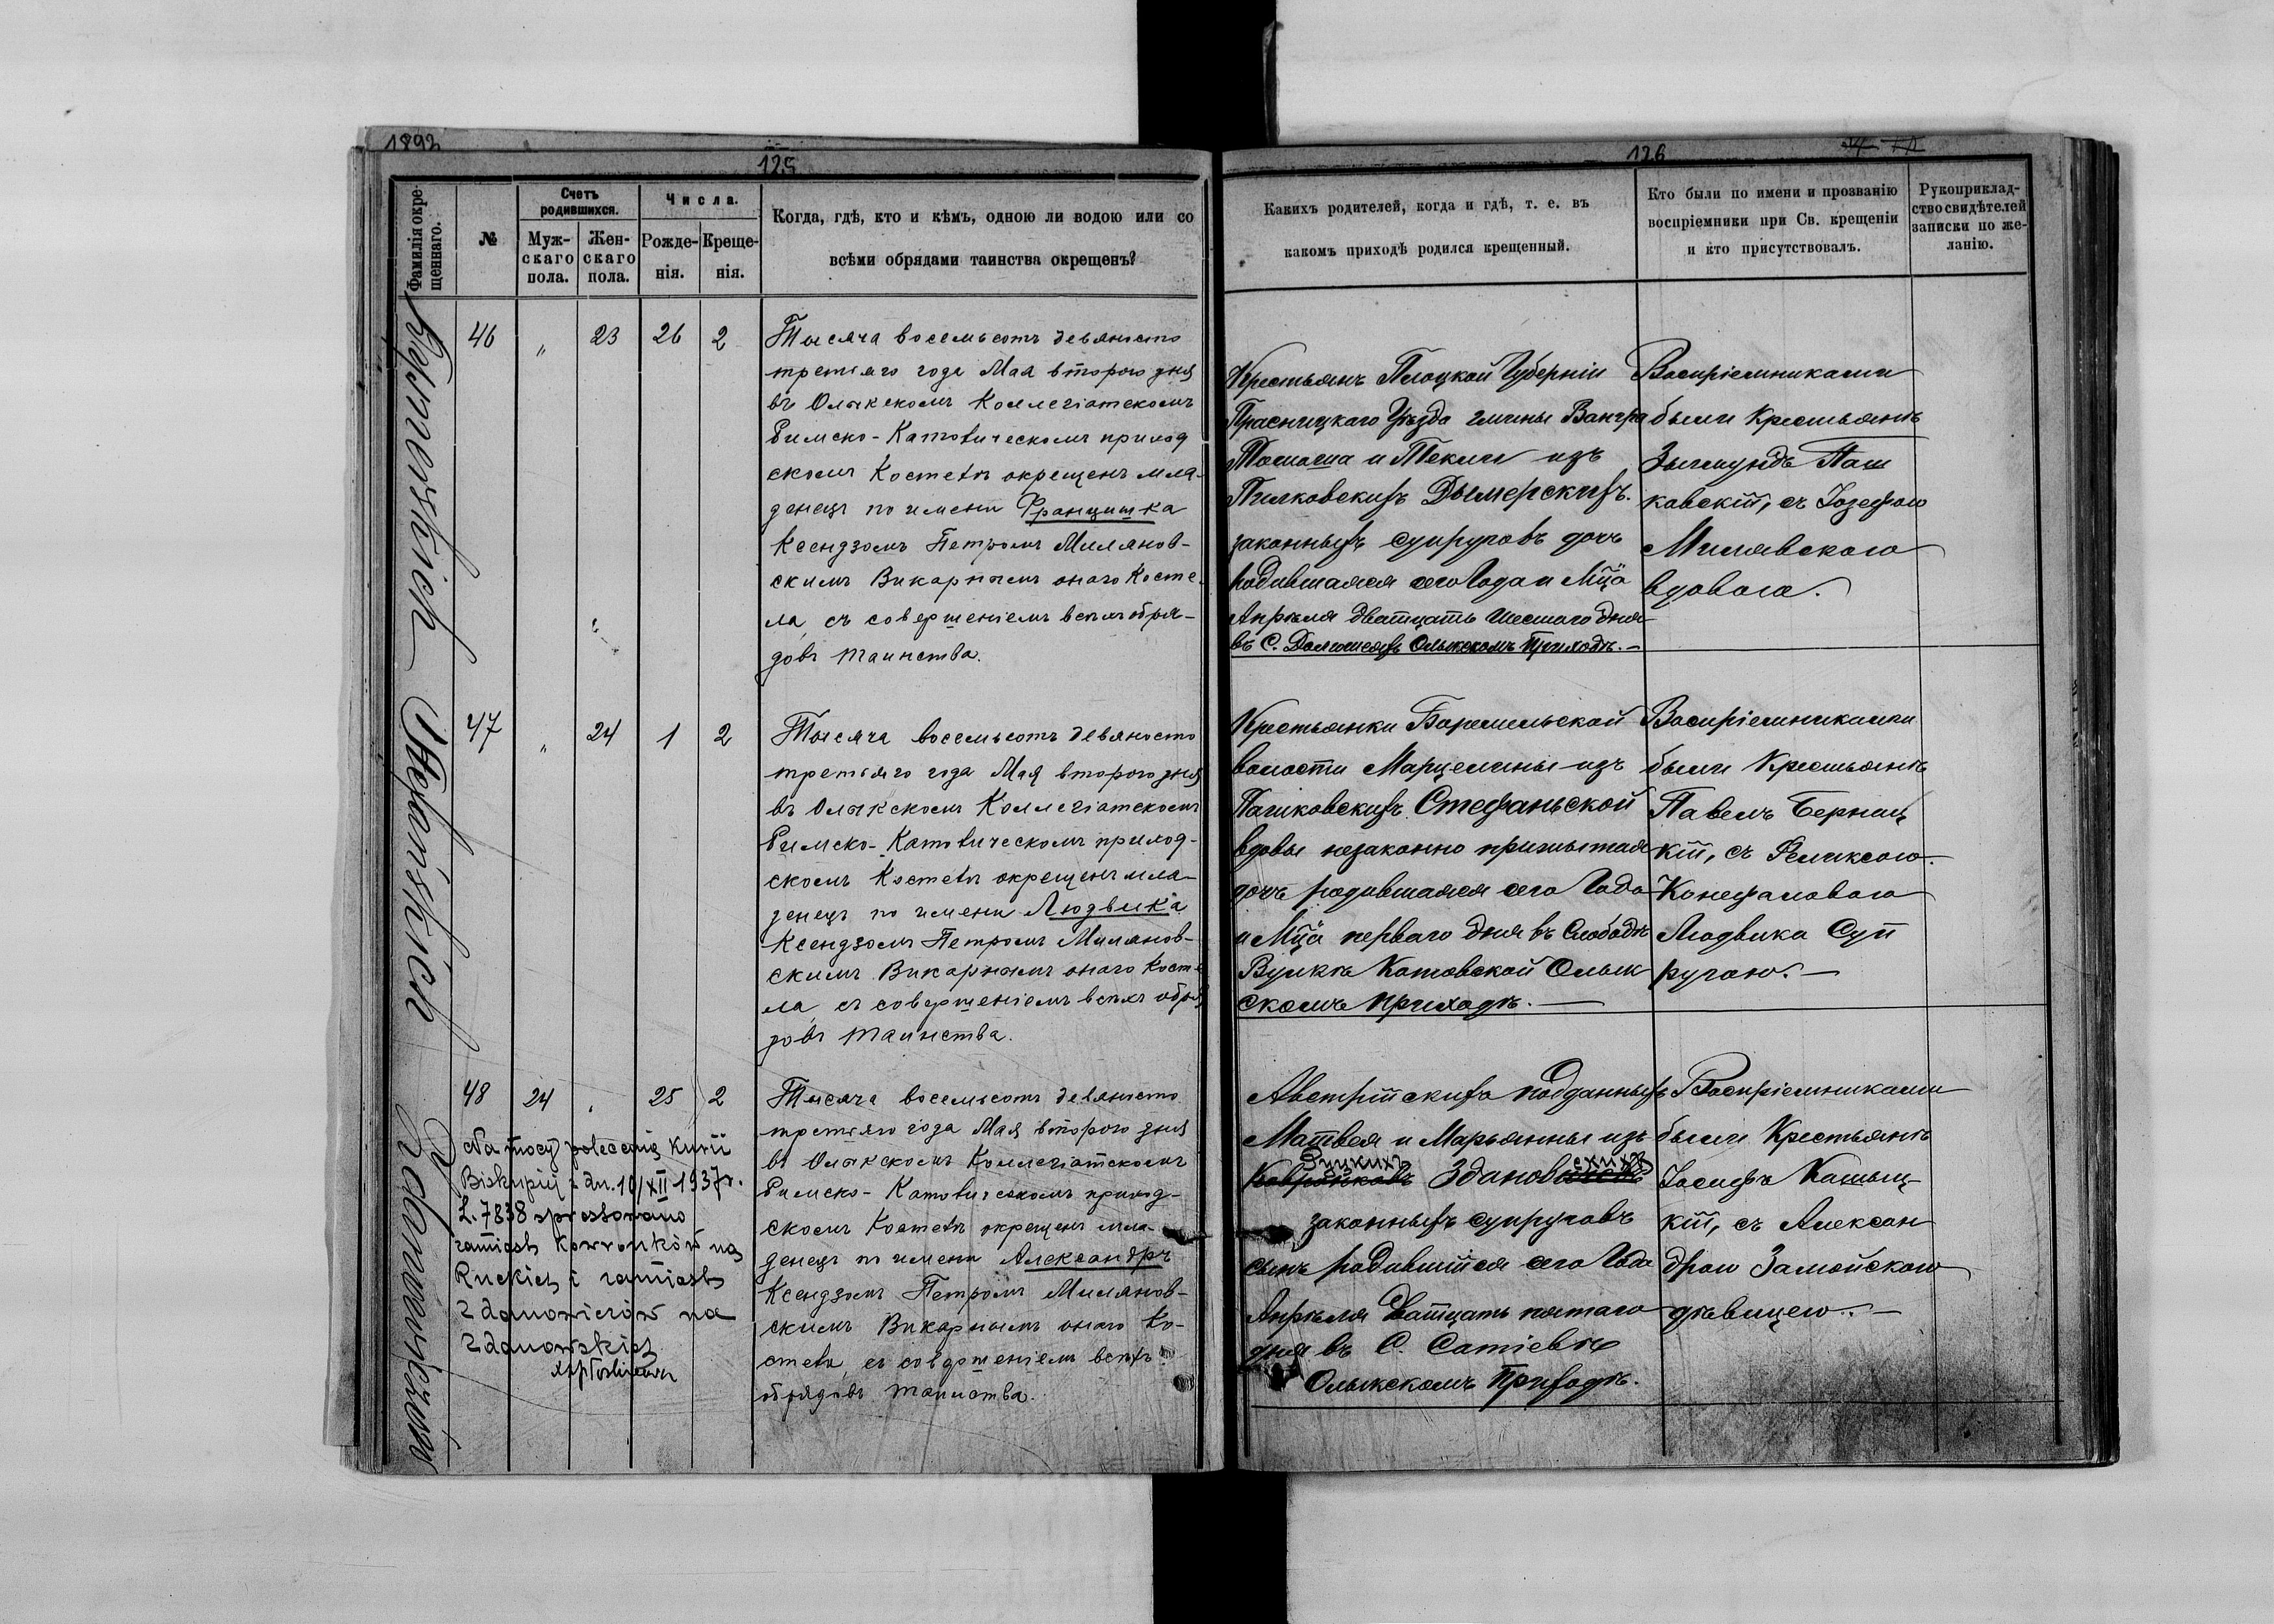 1892
125
Фамилія окре-
щеннаго.
№
Счетъ
родившихся.
Муж-
скаго
пола.
Жен-
скаго
пола.
Числа.
Рожде-
нія.
Креще-
нія.
Когда, гдѣ, кто и кѣмъ, одною ли водою или со
всѣми обрядами таинства окрещенъ?
46 „ 23 26 2
Тысяча восемьсотъ девяносто
третьяго года Мая второго дня
въ Олыкскомъ Коллегіатскомъ
Римско-Католическомъ приход
скомъ Костелѣ окрещенъ мла-
денецъ по имени Францишка
Ксендзомъ Петромъ Милянов-
скимъ Викарнымъ онаго Косте-
ла, съ совершеніемъ всѣхъ обря-
довъ таинства.
Stefańskich
47 „ 24 1 2
Тысяча восемьсотъ девяносто
третьяго года Мая второго дня
въ Олыкскомъ Коллегіатскомъ
Римско-Католическомъ приход-
скомъ Костелѣ окрещенъ мла-
денецъ по имени Людвика
Ксендзомъ Петромъ Милянов-
скимъ Викарнымъ онаго Косте
ла, съ совершеніемъ всѣхъ обря
довъ таинства.
Zdanowiczów
48 24 „ 25 2
Na mocy polecenia Kurii
Biskupiej z dn. 10/XII 1937 r.
L. 7838 sprostowano
zamiast Kowronków na
Ruckich i zamiast
Zdanowiczów na
Zdanowskich
Тысяча восемьсотъ девяносто
третьяго года Мая второго дня
въ Олыкскомъ Коллегіатскомъ
Римско-Католическомъ приход-
скомъ Костелѣ окрещенъ мла-
денецъ по имени Александръ
Ксендзомъ Петромъ Милянов-
скимъ Викарнымъ онаго Ко-
стела, съ совершеніемъ всѣхъ
обрядовъ таинства.
126
Какихъ родителей, когда и гдѣ, т. е. въ
какомъ приходѣ родился крещенный.
Кто были по имени и прозванію
воспріемники при Св. крещеніи
и кто присутствовалъ.
Рукоприклад-
ство свидѣтелей
записки по же-
ланію.
Крестьянъ Плоцкой Губерніи
Прасницкаго Уѣзда гмины Вангра
Томаша и Теклі изъ
Пилковскихъ Дымерскихъ
законныхъ супруговъ дочь
родившаяся сего Года и Мца
Апрѣля двадцать Шестого дня
въ С. Олыкскомъ Приходѣ.
Воспріемниками
были Крестьянъ
Зыгмундъ Паш
ковскій, съ Іозефою
Милявскою
вдовою.
Крестьянки Боремельской
волости Марцелины изъ
Пашковскихъ Стефаньской
вдовы незаконно прижытая
дочь родившаяся сего Года
и Мца перваго дня въ Слободѣ
Вулькѣ Котовской Олык
скомъ Приходѣ.
Воспріемниками
были Крестьянъ
Павелъ Берниц
кій, съ Феликсою
Конефаловою
Людвика Суп
ругою.
Австрійскихъ подданныхъ
Матвея и Марьянны изъ
Руцкихъ скихъ
Ковронковъ Здановичевъ
законныхъ супруговъ
сынъ родившійся сего Года
Апрѣля двадцать пятаго
дня въ С. Сатіевѣ
Олыкскомъ Приходѣ.
Воспріемниками
были Крестьянъ
Іосифъ Кашиц-
кій, съ Алексан
дрою Замойскою
дѣвицею.